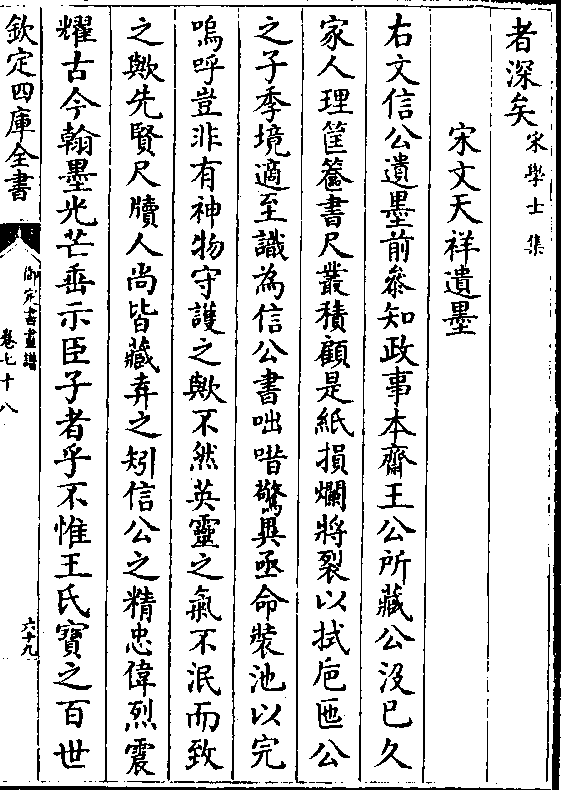 者深矣宋學士集
宋文天祥遺墨
右文信公遺墨前叅知政事本齋王公所藏公没已久
家人理筐篋書尺叢積顧是紙損爛將裂以拭卮匜公
之子季境適至識為信公書咄唶驚異亟命裝池以完
嗚呼豈非有神物守護之歟不然英靈之氣不泯而致
之歟先賢尺牘人尚皆藏弆之矧信公之精忠偉烈震
耀古今翰墨光芒垂示臣子者乎不惟王氏寶之百世
欽定四庫全書
御定書畫譜
卷七十八
六十九